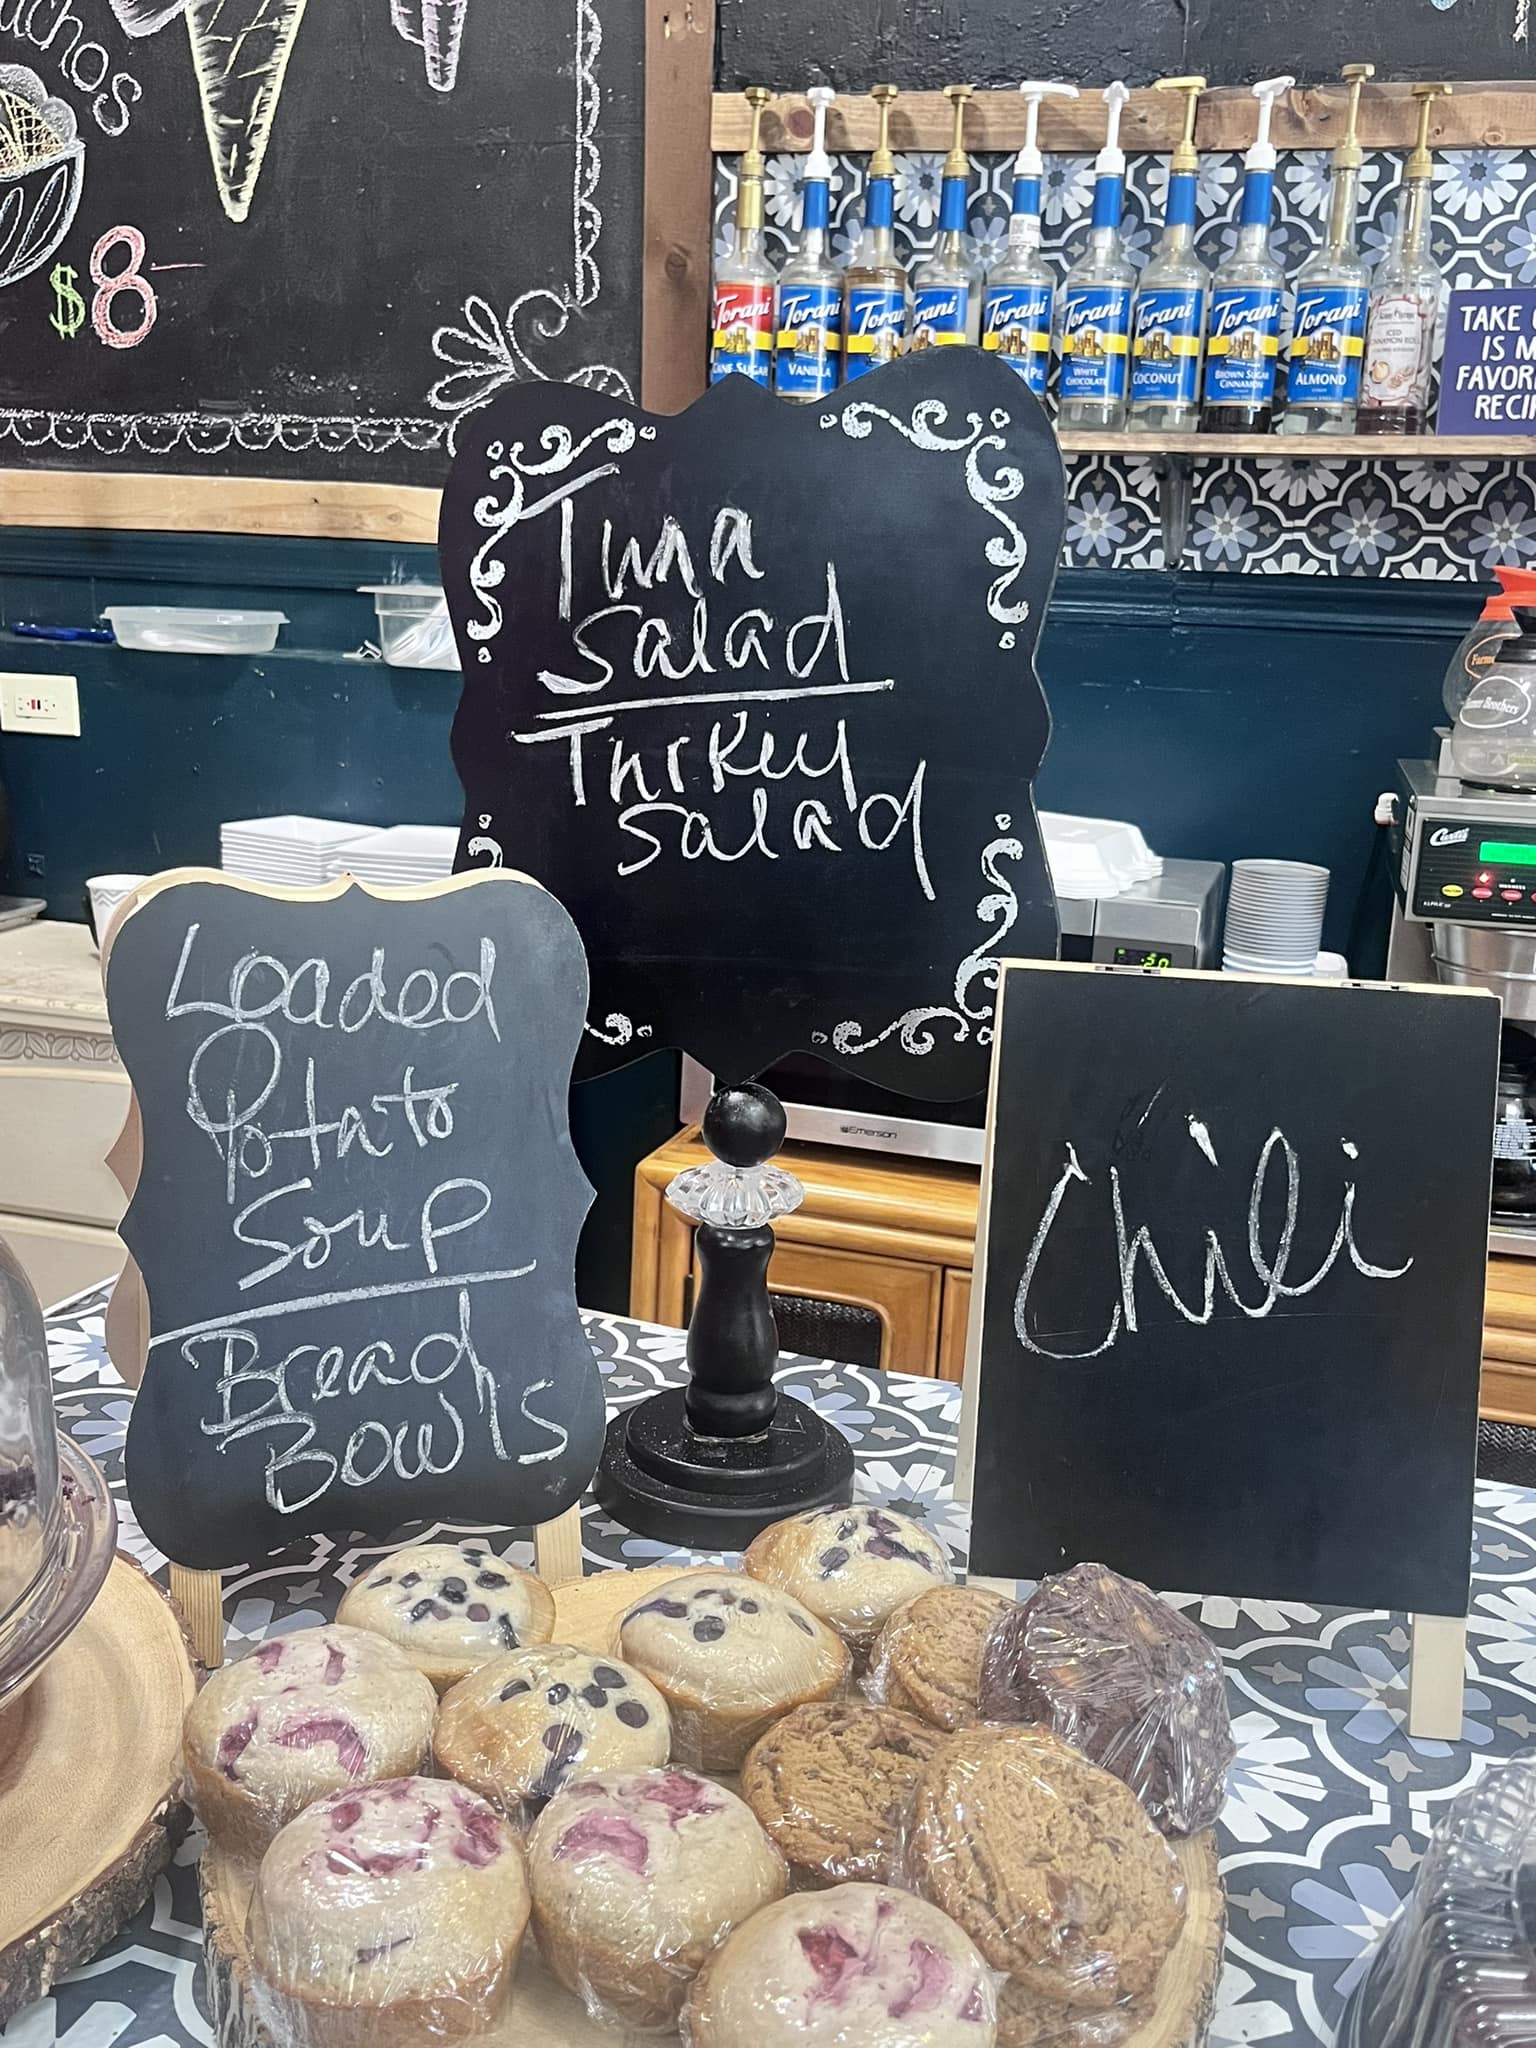 $8
Torani
CANE SUGAR
Torani
VANILLA
Torani
Torani
Torani
Torani
WHITE
CHOCOLATE
Torani
COCONUT
Torani
BROWN SUGAR
CINNAMON
Torani
ALMOND
ICED
CINNAMON ROLL
TAKE
IS
Tuna
Salad
Turkey
Salad
Loaded
Potato
Soup
Bread
Bowls
Chili
Emerson
Curtis
Brothers